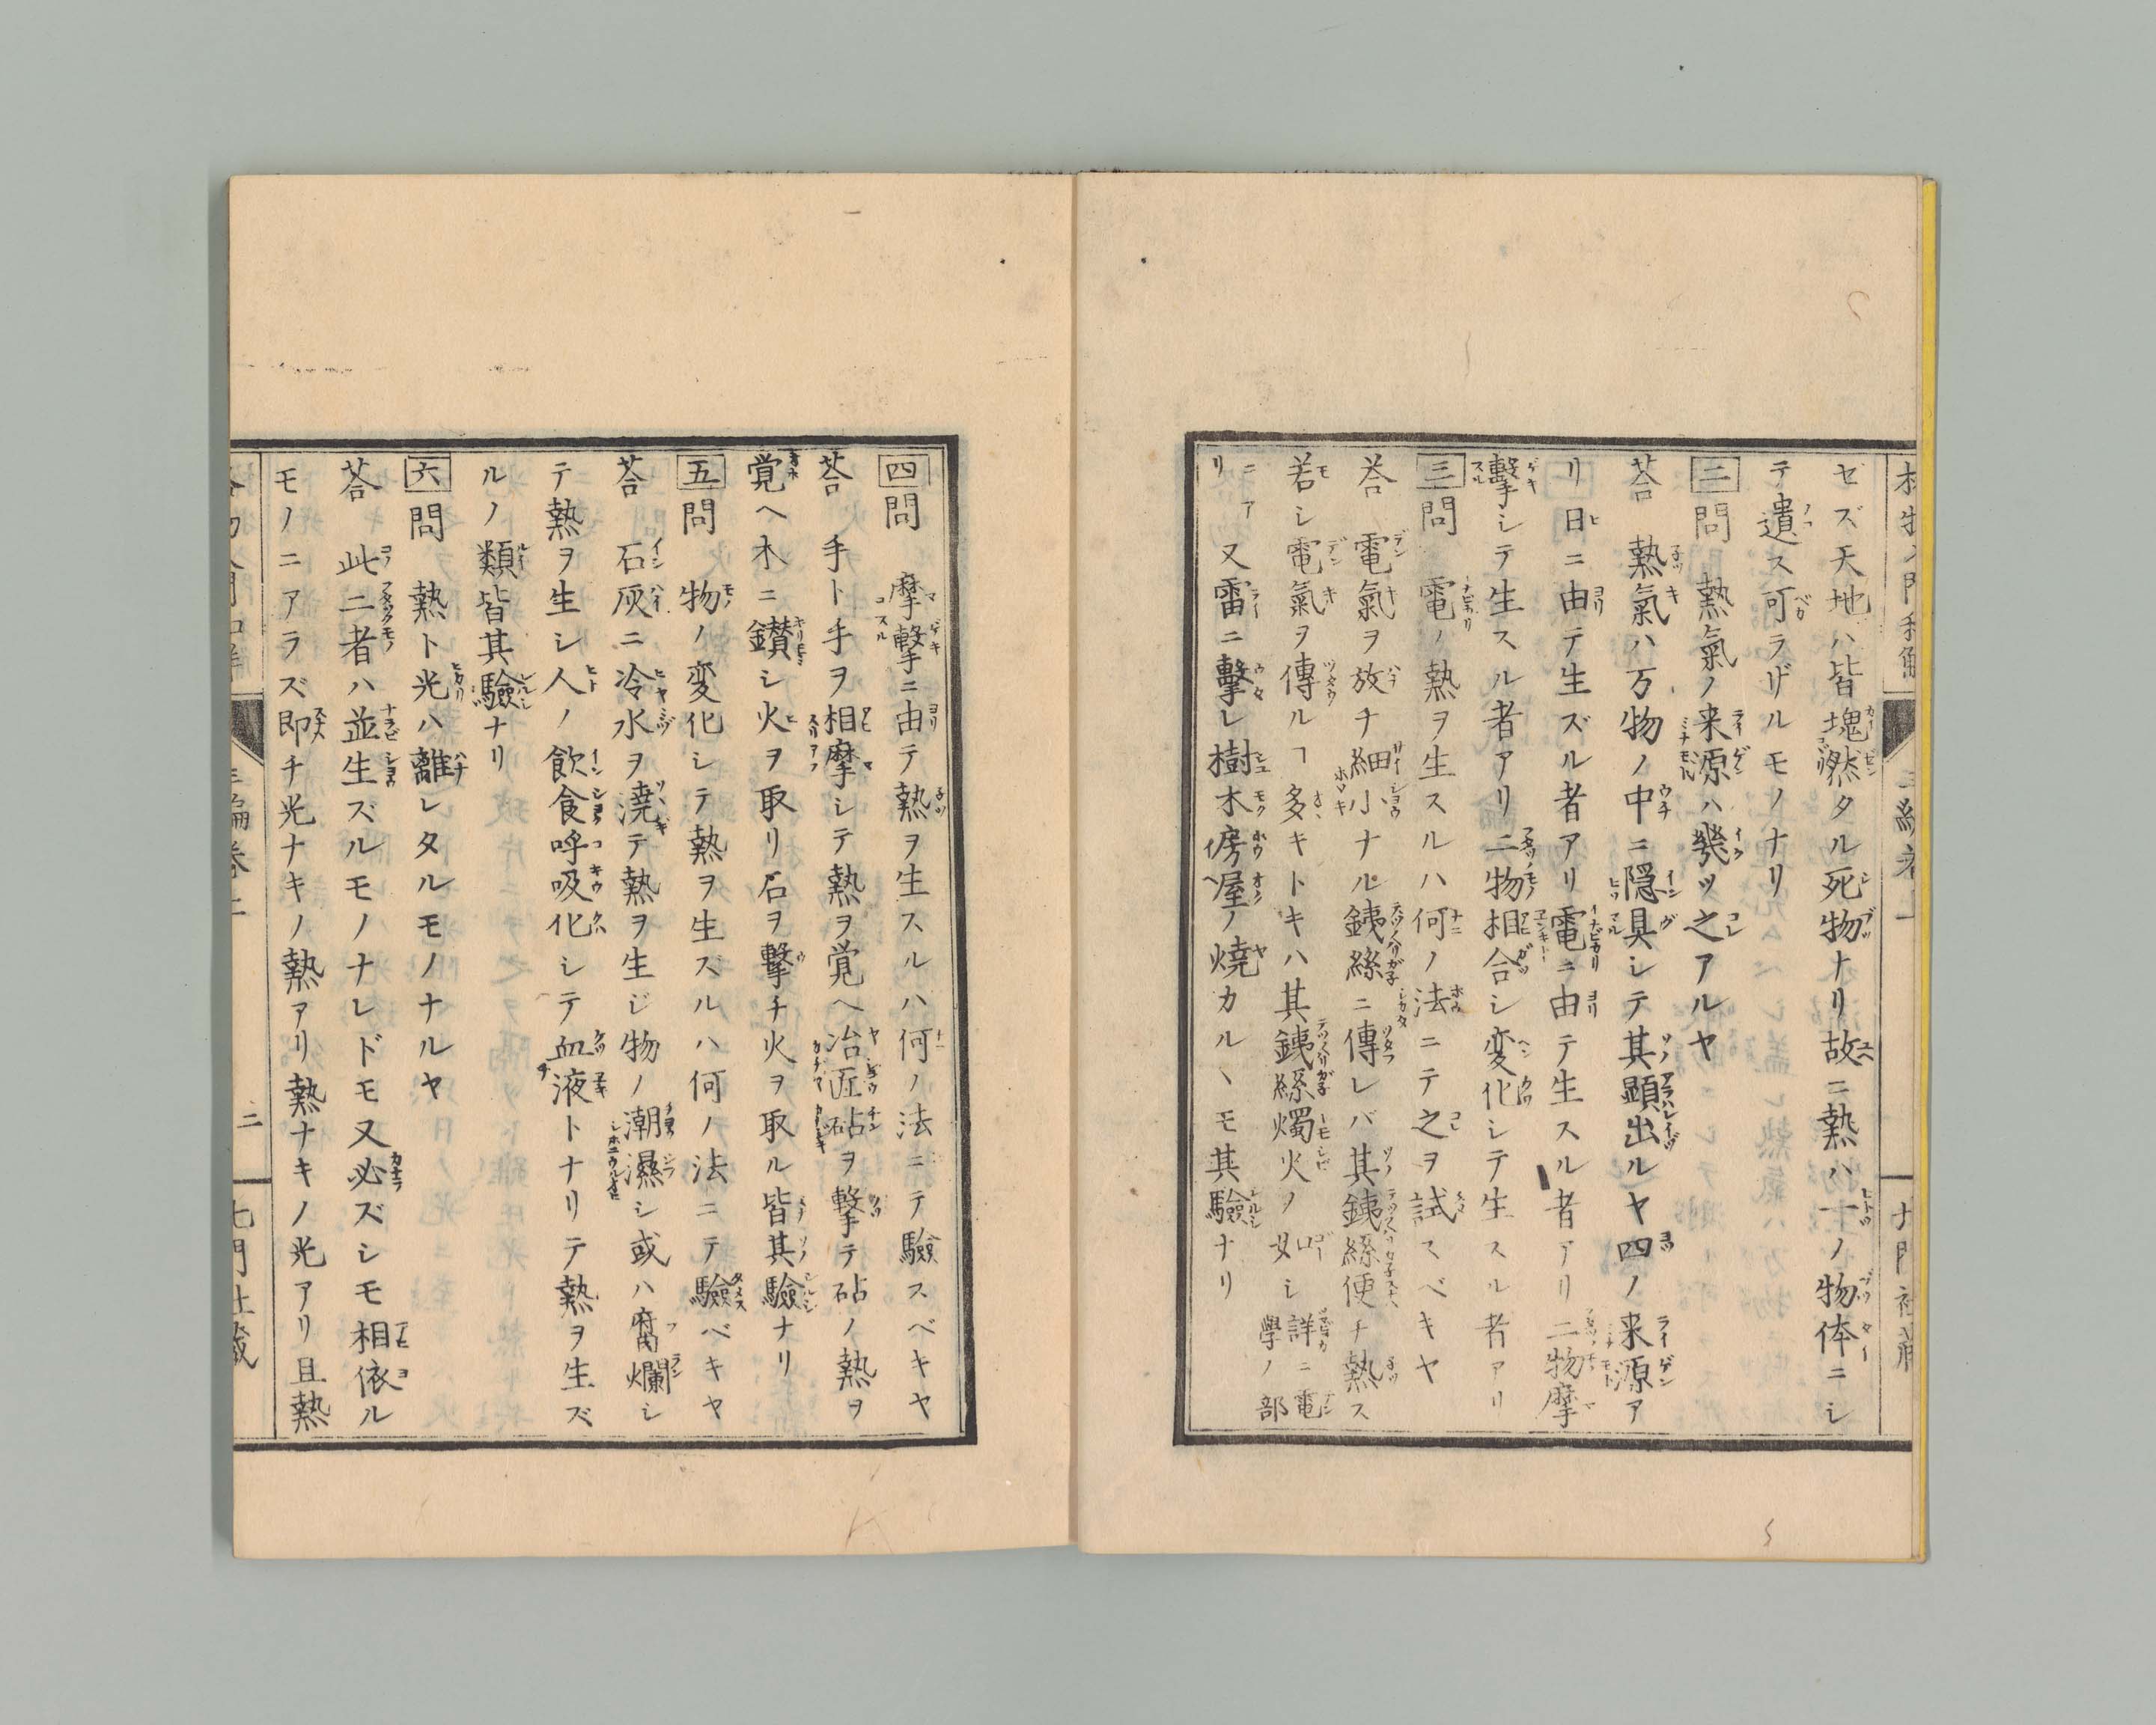 ゼズ天地ハ皆塊然タル死物ナリ故ニ熱ハ一ノ物体ニシ
テ遺ス可ラザルモノナリ
二問 熱氣ノ来源ハ幾ツ之アルヤ
荅 熱氣ハ万物ノ中ニ隠具シテ其顕出ルヤ四ノ来源ア
リ日ニ由テ生ズル者アリ電ニ由テ生スル者アリ二物摩
擊シテ生スル者アリ二物相合シ変化シテ生スル者アリ
三問 電ノ熱ヲ生スルハ何ノ法ニテ之ヲ試スベキヤ
荅 電氣ヲ放チ細小ナル銕絲ニ傳レバ其銕絲便チ熱ス
若シ電氣ヲ傳ルヿ多キトキハ其銕絲燭火ノ如シ詳ニ電學ノ部
ニアリ 又雷ニ擊レ樹木房屋ノ燒カルヽモ其驗ナリ
四問 摩擊ニ由テ熱ヲ生スルハ何ノ法ニテ驗スベキヤ
荅 手ト手ヲ相摩シテ熱ヲ覚ヘ冶匠砧ヲ擊テ砧ノ熱ヲ
覚ヘ木ニ鑚シ火ヲ取リ石ヲ擊チ火ヲ取ル皆其驗ナリ
五問 物ノ変化シテ熱ヲ生ズルハ何ノ法ニテ驗ベキヤ
荅 石灰ニ冷水ヲ澆テ熱ヲ生じ物ノ潮濕シ或ハ腐爛シ
テ熱ヲ生シ人ノ飲食呼吸化シテ血液トナリテ熱ヲ生ズ
ルノ類皆其驗ナリ
六問 熱ト光ハ離レタルモノナルヤ
荅 此二者ハ並生ズルモノナレドモ又必ズシモ相依ル
モノニアラズ即チ光ナキノ熱アリ熱ナキノ光アリ且熱
二